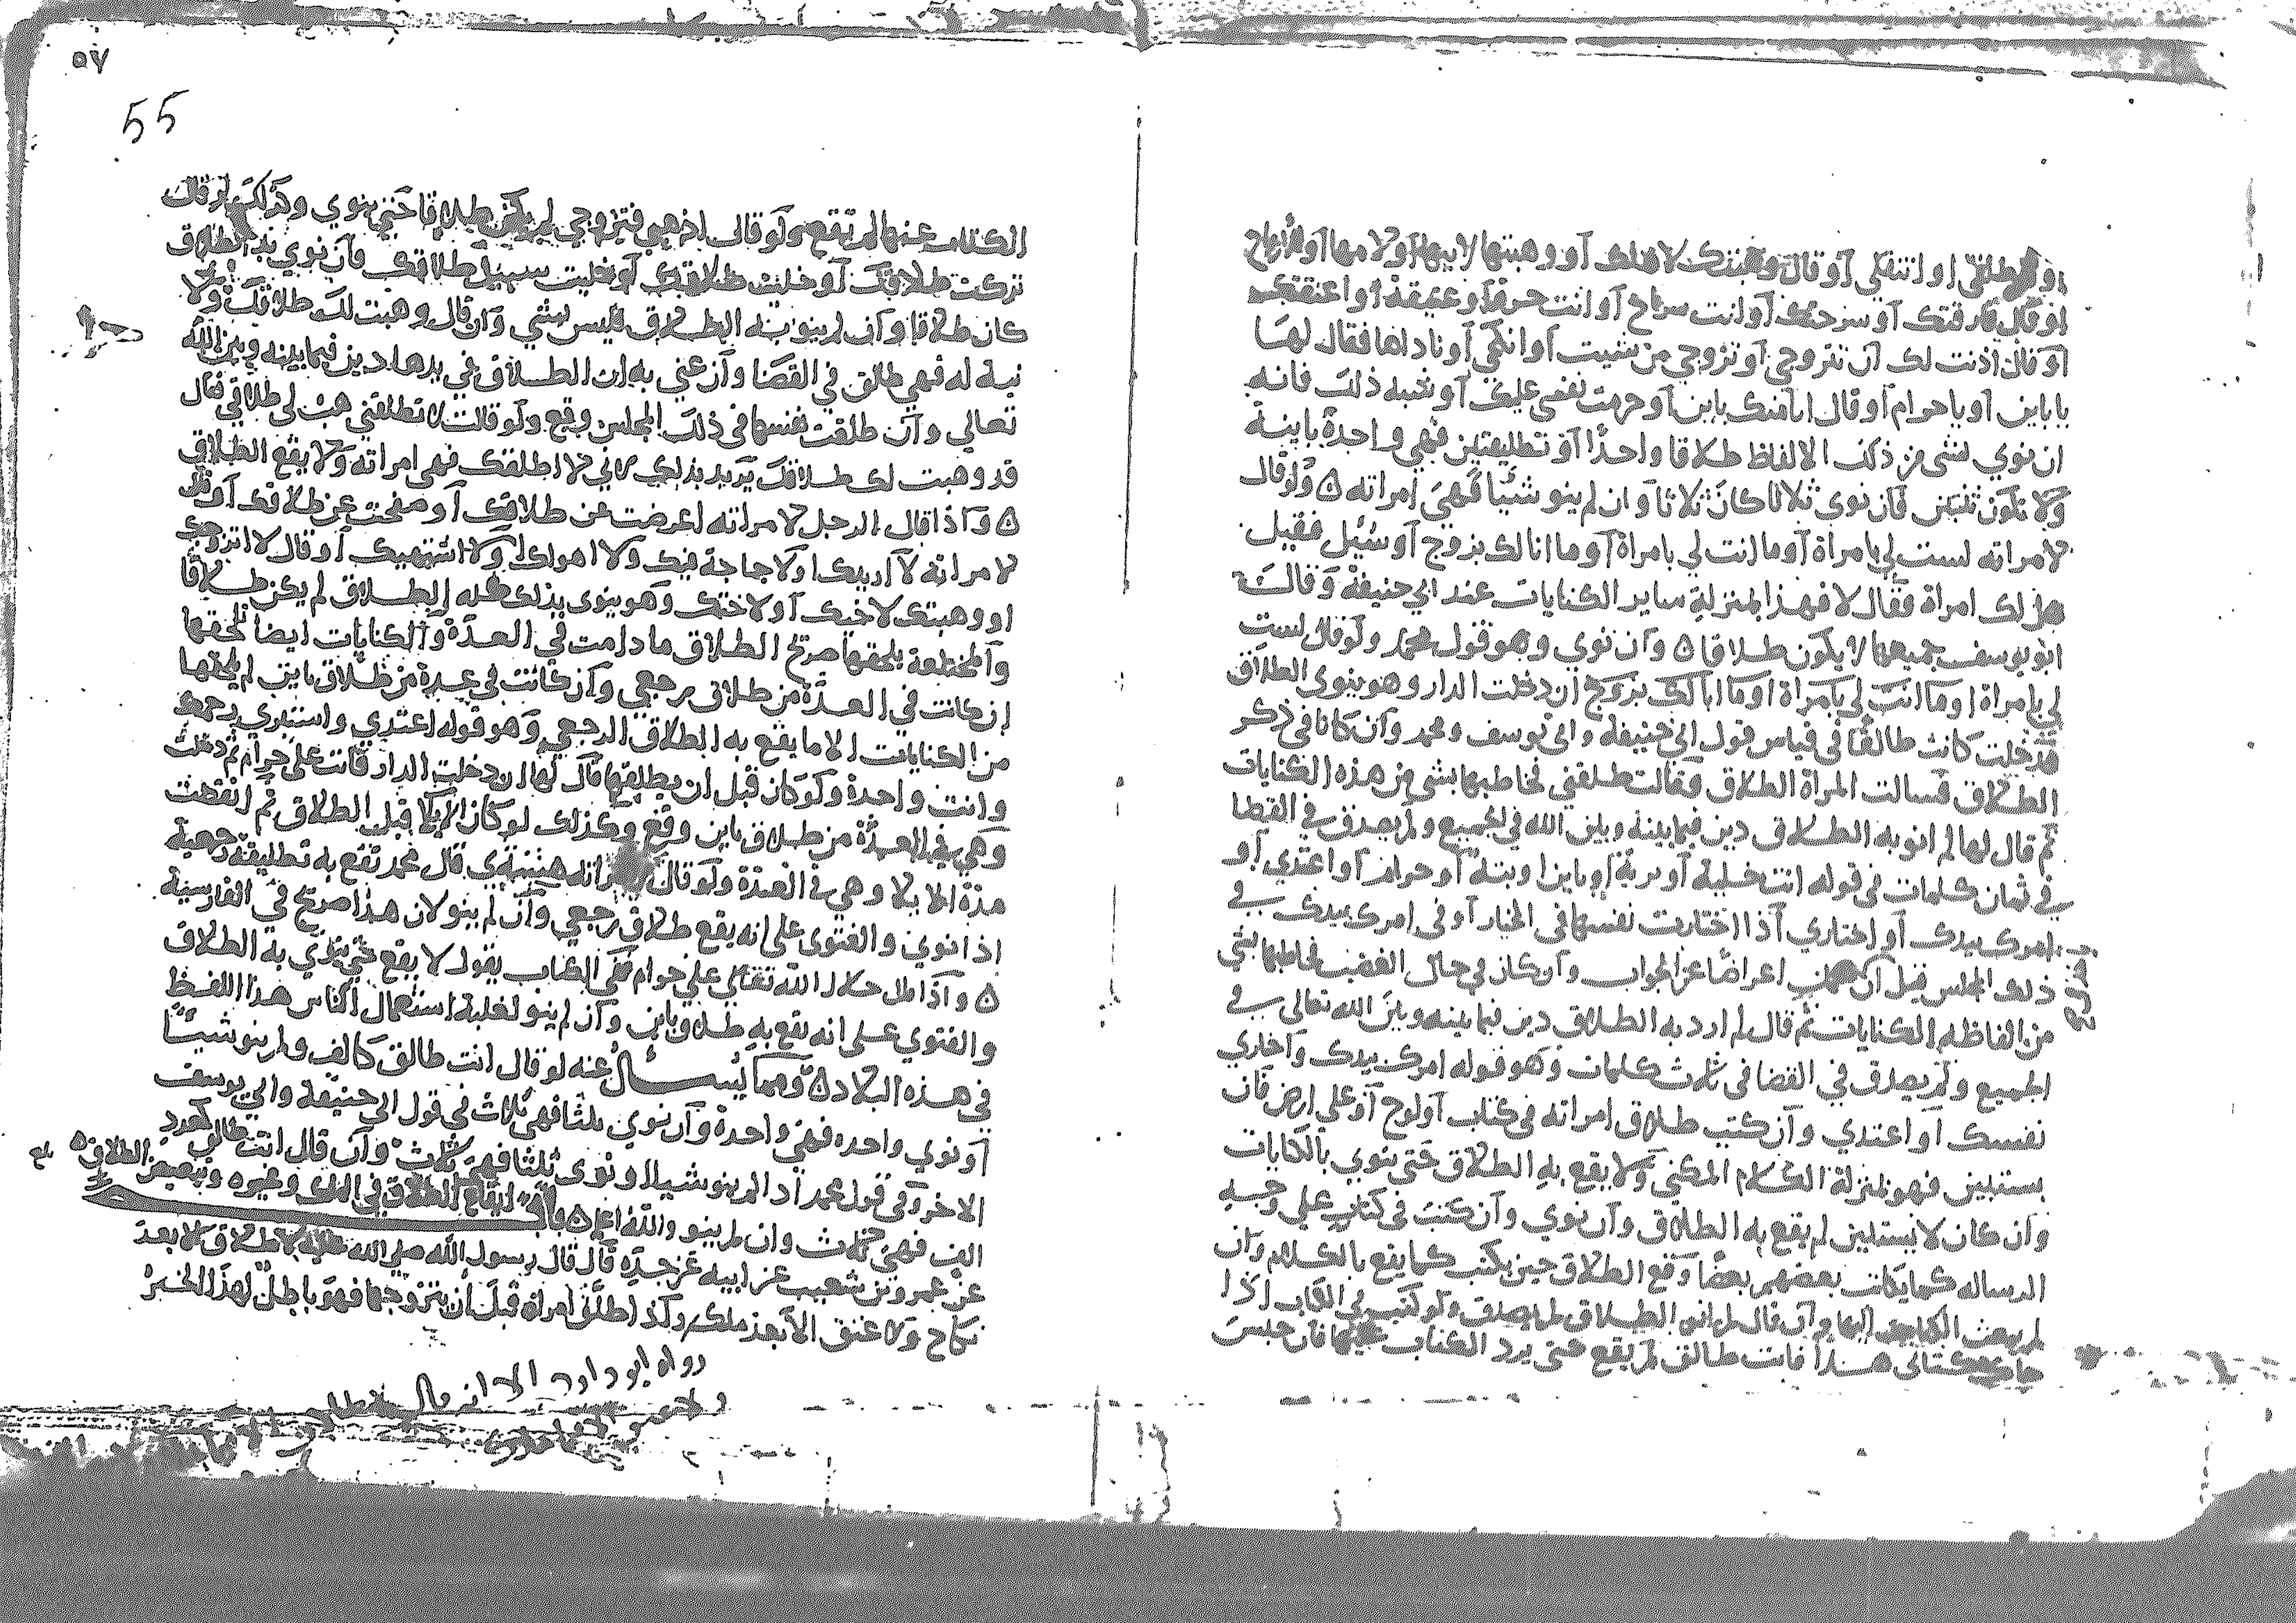 او انتقلي او قال وهبتك لاهلك او وهبتها لابيها او لامها او للازواج
او قال فارقتك او سرحتك او انت سراح او انت حرة او عتيقة او اعتقتك
او قال اذنت لك ان تتزوجي او تزوجي من شيت او انكحي او ناداها فقال لها
يا باين او يا حرام او قال انا منك باين او حرمت نفسي عليك او شبه ذلك فانه
ان نوي بشي من ذلك الالفاظ طلاقا واحدا او تطليقتين فهي واحدة باينة
ولا تكون ثنتين فان نوى ثلاثا كان ثلاثا وان لم ينو شيئا فهى امراته ه ولو قال
لامراته لست لي بامراة او ما انت لي بامراة او ما انا لك بزوج او سُئل فقيل
هل لك امراة فقال لا فهذا بمنزلة ساير الكنايات عند ابي حنيفة وقال
ابو يوسف لا يكون طلاقا ه وان نوي وهو قول محمد ولو قال لست
لي بامراة او ما انت لي بامراة او ما انا لك بزوج ان دخلت الدار وهو ينوي الطلاق
فدخلت كانت طالقا في قياس قول ابي حنيفة وابي يوسف ومحمد وان كانا في ذكر
الطلاق فسالت المراة الطلاق وقالت طلقني فخاطبها بشي من هذه الكنايات
ثم قال لها لم انو به الطلاق دين فيما بينه وبين الله في الجميع ولم يصدق في القضا
في ثمان كلمات في قوله انت خلية او برية او باين او بتة او حرام او اعتدي او
امرك بيدك او اختاري اذا اختارت نفسها في الخيار او في امرك بيدك في
ذلك المجلس قبل ان اعراضا عن الجواب وان كان في حال الغضب فخاطبها بشي
من الفاظ الكنايات ثم قال لم ارد به الطلاق دين فيما بينه وبين الله تعالى في
الجميع ولم يصدق في القضا في ثلث كلمات وهو قوله امرك بيدك واختاري
نفسك او اعتدي وان كتب طلاق امراته في كتاب او لوح او على ارض فان
يستبين فهو بمنزلة الكلام المكني ولا يقع به الطلاق حتى ينوي بالكنايات
وان كان لا يستبين لم يقع به الطلاق وان نوي وان كتب في كتاب علي وجه
الرساله كما يكاتب بعضهم بعضا وقع الطلاق حين يكتب كما يقع بالكلام وان
لم يبعث الكتاب اليها وان قال لم انو الطلاق لم يصدق ولو كتب في الكتاب اذا
جاك كتابي هذا فانت طالق لم يقع حتى يرد الكتاب عليها فان حبس
٥٧
55
الكتاب عنها لم تقع ولو قال اذهبي فتزوجي لم يكن طلاقا حتى ينوي وكذلك لو قال
تركت طلاقك او خليت طلاقك او خليت سبيل طلاقك فان نوي به الطلاق
كان طلاقا وان لم ينو به الطلاق فليس بشي وان قال وهبت لك طلاقك ولا
نية له فهي طالق في القضا وان عني به ان الطلاق في يدها دين فيما بينه وبين الله
تعالي وان طلقت نفسها في ذلك المجلس وقع ولو قالت لا تطلقني هب لي طلاقي فقال
قد وهبت لك طلاقك يريد بذلك اني لا اطلقك فهي امراته ولا يقع الطلاق
ه واذا قال الرجل لامراته اعرضت عن طلاقك او صفحت عن طلاقك او قال
لامراته لا اريدك او لا حاجة فيك ولا اهواك ولا اشتهيك او قال لا اتزوجك
او وهبتك لاخيك او لاختك وهو ينوي بذلك كله الطلاق لم يكن طلاقا
والمختلعة يلحقها صريح الطلاق ما دامت في العدة والكنايات ايضا تلحقها
ان كانت في العدة من طلاق رجعي وان كانت في عدة من طلاق باين لم يلحقها
من الكنايات الا ما يقع به الطلاق الرجعي وهو قوله اعتدي واستبري رحمك
وانت واحدة ولو كان قبل ان يطلقها قال لها ان دخلت الدار فانت علي حرام ثم دخلت
وهي في العدة من طلاق باين وقع وكذلك لو كان الايلا قبل الطلاق ثم انقضت
مدة الايلا وهي في العدة ولو قال لامراته قال محمد تقع به تطليقة رجعية
اذا نوي والفتوى علي انه يقع طلاق رجعي وان لم ينو لان هذا صريح في الفارسية
ه واذا قال حلال الله تعالي علي حرام ففي الكتاب يقول لا يقع حتى ينوي به الطلاق
والفتوي علي انه يقع به طلاق باين وان لم ينو لغلبة استعمال الناس هذا اللفظ
في هذه البلاد ه ومما يسال عنه لو قال انت طالق كالف ولم ينو شيئا
او نوي واحده فهي واحدة وان نوي ثلثا فهي ثلاث في قول ابي حنيفة وابي يوسف
الاخر وفي قول محمد اذا لم ينو شيا او نوى ثلثا فهي ثلث وان قال انت طالق كعدد
الف فهي ثلث وان لم ينو والله اعلم ه باب ايقاع الطلاق في الملك وغيره وتبعيض الطلاق ه
عن عمرو بن شعيب عن ابيه عن جده قال قال رسول الله صلي الله عليه لا طلاق الا بعد
نكاح ولا عتق الا بعد ملك واذا طلق امراة قبل ان يتزوجها فهو باطل لهذا الخبر
رواه ابو داود الا انه قال لا طلاق